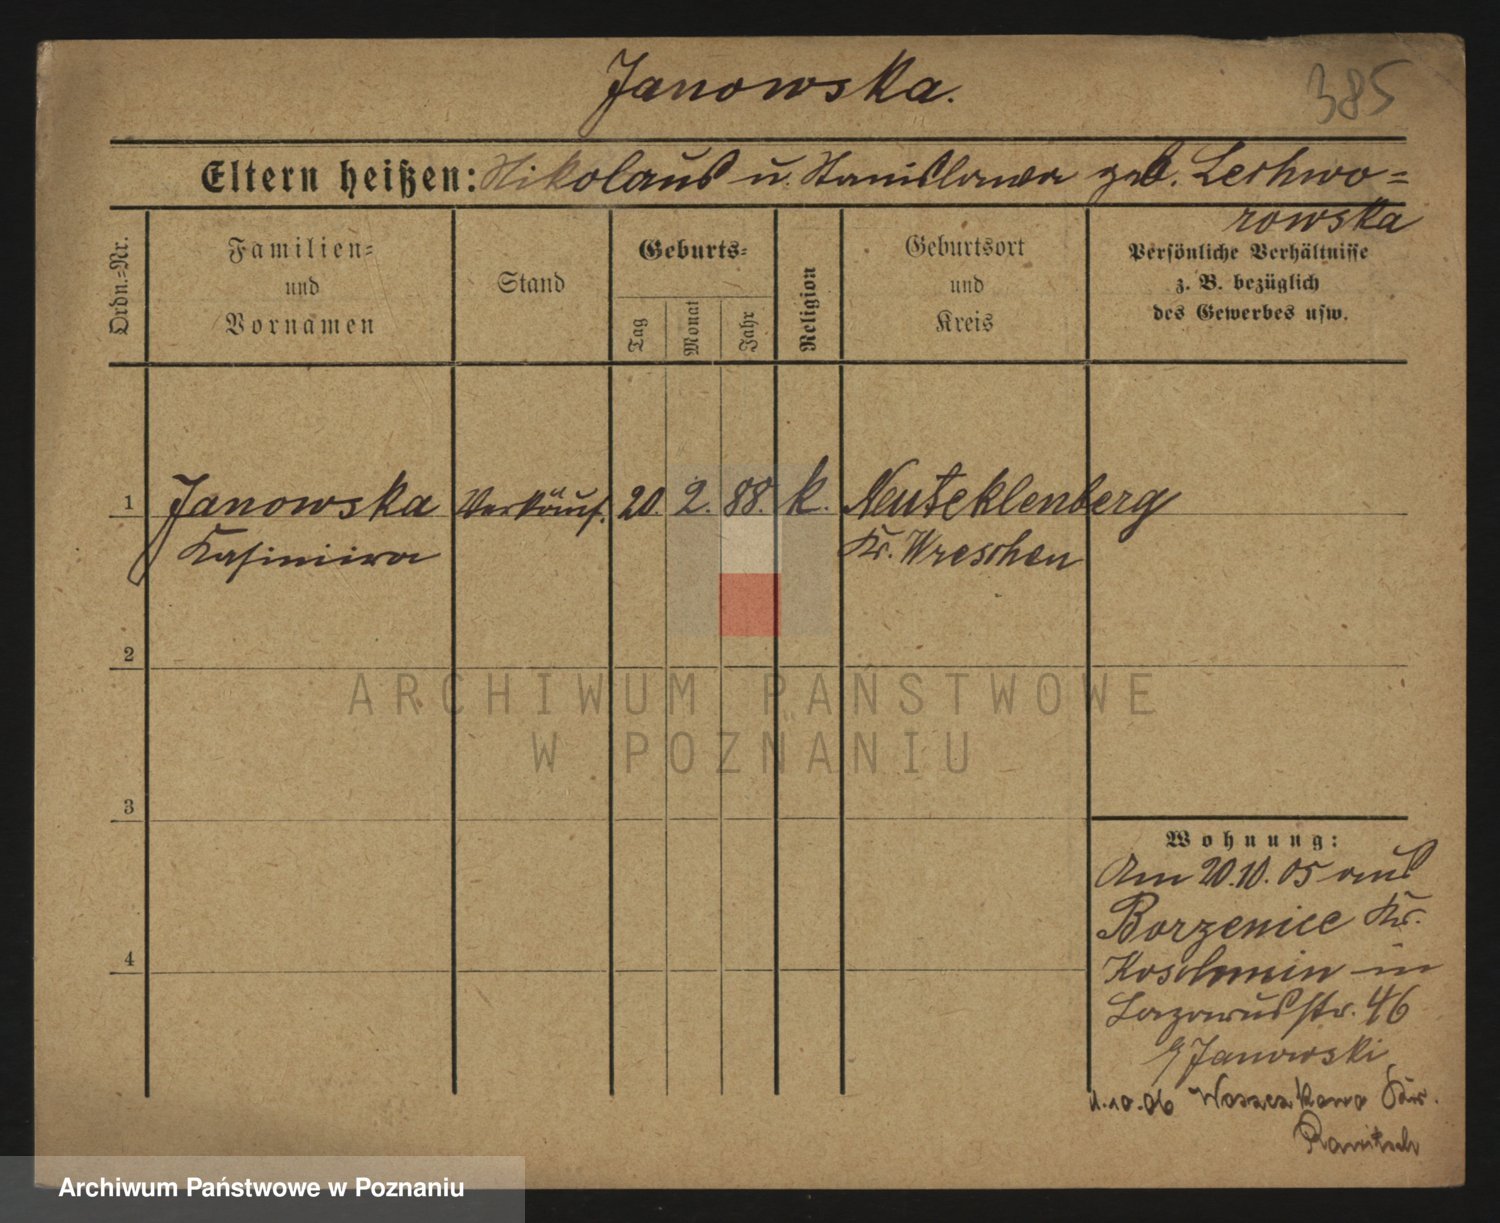 Janowska.
385
Eltern heißen: Nikolaus u. Stanislawa geb. Lechwo=
rowska
Ordn.=Nr.
Familien=
und
Vornamen
Stand
Geburts=
Tag
Monat
Jahr
Religion
Geburtsort
und
Kreis
Persönliche Verhältnisse
z. B. bezüglich
des Gewerbes usw.
1 Janowska Verkäuf. 20. 2. 88. k. Neuteklenberg
Kasimira Kr. Wreschen
2
3
4
Wohnung:
Am 20.10.05 aus
Borzenice Kr.
Koschmin in
Lazarusstr. 46
b/Janowski
1.10.06 Kr.
Rawitsch
ARCHIWUM PAŃSTWOWE
W POZNANIU
Archiwum Państwowe w Poznaniu